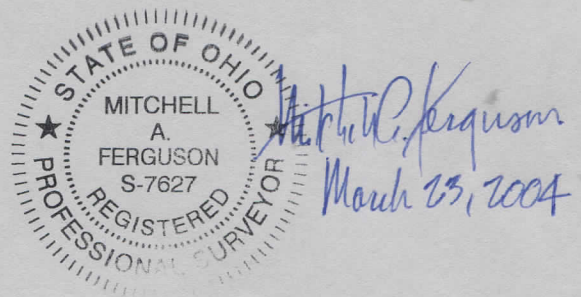 STATE OF OHIO
MITCHELL
A.
FERGUSON
S-7627
REGISTERED
PROFESSIONAL SURVEYOR
Mitchell A. Ferguson
March 23, 2004